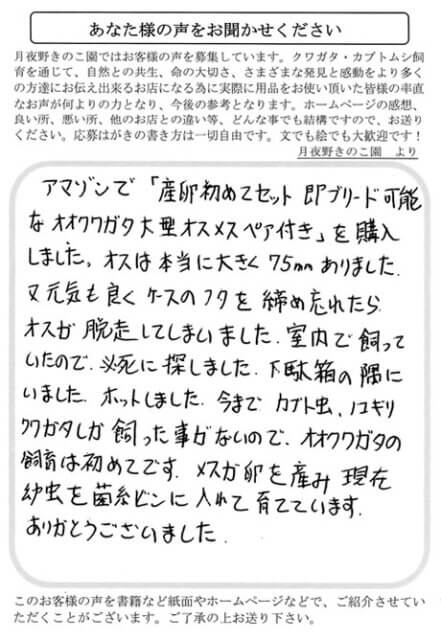 あなた様の声をお聞かせください
月夜野きのこ園ではお客様の声を募集しています。クワガタ・カブトムシ飼
育を通じて、自然との共生、命の大切さ、さまざまな発見と感動をより多く
の方達にお伝え出来るお店になる為に実際に用品をお使い頂いた皆様の率直
なお声が何よりの力となり、今後の参考となります。ホームページの感想、
良い所、悪い所、他のお店との違い等、どんな事でも結構ですので、お送り
ください。応募はがきの書き方は一切自由です。文でも絵でも大歓迎です！
月夜野きのこ園　より
アマゾンで「産卵初めてセット 即ブリード可能
な オオクワガタ大型オスメスペア付き」を購入
しました。オスは本当に大きく75mmありました.
又元気も良くケースのフタを締め忘れたら
オスが脱走してしまいました.室内で飼って
いたので.必死に探しました.下駄箱の隅に
いました.ホットしました.今までカブト虫、ノコギリ
クワガタしか飼った事がないので、オオクワガタの
飼育は初めてです.メスが卵を産み現在
幼虫を菌糸ビンに入れて育てています.
ありがとうございました.
このお客様の声を書籍など紙面やホームページなどで、ご紹介させてい
ただくことがございます。ご了承の上お送り下さい。